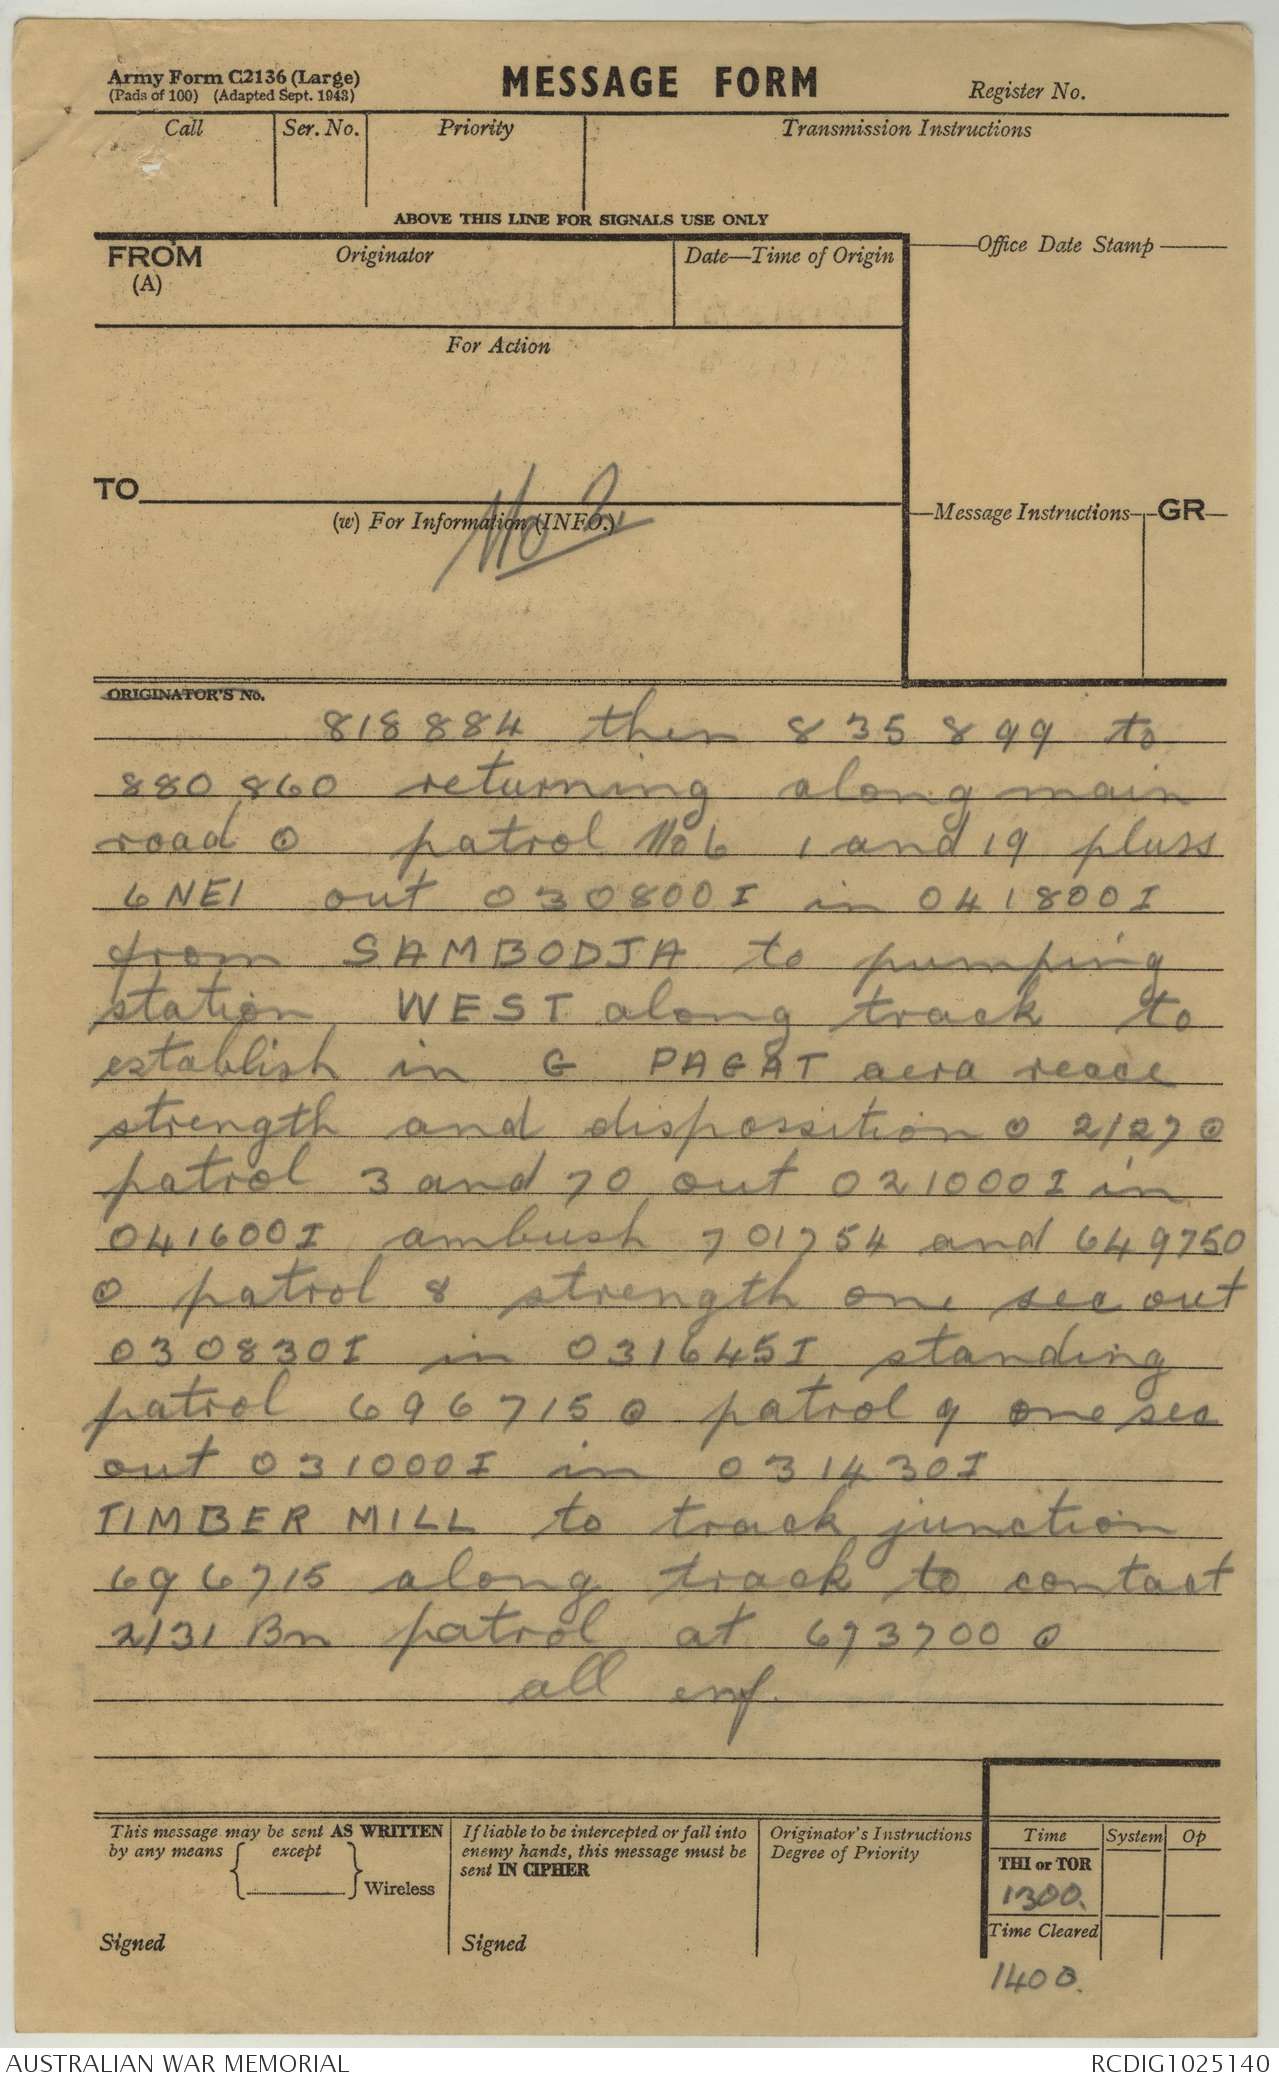 Army Form C2136 (Large)
(Pads of 100) (Adapted Sept. 1943)
MESSAGE FORM
Register No.
Call
Ser. No.
Priority
Transmission Instructions
ABOVE THIS LINE FOR SIGNALS USE ONLY
FROM
(A)
Originator
Date—Time of Origin
Office Date Stamp
For Action
TO
(w) For Information (INFO.)
No 2
Message Instructions
GR
ORIGINATOR'S No.
818884 then 835899 to
880860 returning along main
road O patrol No 6 1 and 19 pluss
6 NEI out 030800I in 041800I
from SAMBODJA to pumping
station WEST along track to
establish in G PAGAT aera recce
strength and dispossition O 2/27 O
patrol 3 and 70 out 021000I in
041600I ambush 701754 and 649750
O patrol 8 strength one sec out
030830I in 031645I standing
patrol 696715 O patrol 9 one sec
out 031000I in 031430I
TIMBER MILL to track junction
696715 along track to contact
2/31 Bn patrol at 673700 O
all inf.
This message may be sent AS WRITTEN
by any means except
Wireless
Signed
If liable to be intercepted or fall into
enemy hands, this message must be
sent IN CIPHER
Signed
Originator's Instructions
Degree of Priority
Time
System
Op
THI or TOR
1300.
Time Cleared
1400.
AUSTRALIAN WAR MEMORIAL
RCDIG1025140